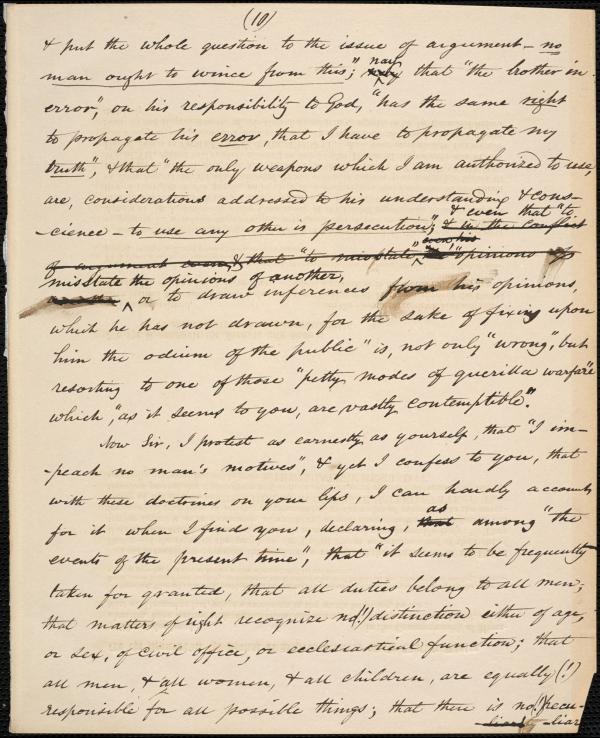 (10)
& put the whole question to the issue of argument – no
man ought to wince from this"; nay that "the brother in
error", on his responsibility to God, "has the same right
to propagate his error, that I have to propagate my
truth", & that "the only weapons which I am authorized to use,
are, considerations addressed to his understanding & cons-
-cience – to use any other is persecution"; & in the conflict
& even that "to
of argument even, & that "to misstate" even his "opinions of
misstate the opinions of another,
another or to draw inferences from his opinions,
which he has not drawn, for the sake of fixing upon
him the odium of the public" is, not only "wrong", but
resorting to one of those "petty modes of guerilla warfare"
which, "as it seems to you, are vastly contemptible".
Now Sir, I protest as earnestly as yourself, that "I im-
-peach no man's motives", & yet I confess to you, that
with these doctrines on your lips, I can hardly account
for it when I find you, declaring, that as among "the
events of the present time", that "it seems to be frequently
taken for granted, that all duties belong to all men;
that matters of right recognize no(!) distinction either of age,
or sex, of civil office, or ecclesiastical function; that
all men, & all women, & all children, are equally (!)
responsible for all possible things; that there is no(!) pecu-
-liar